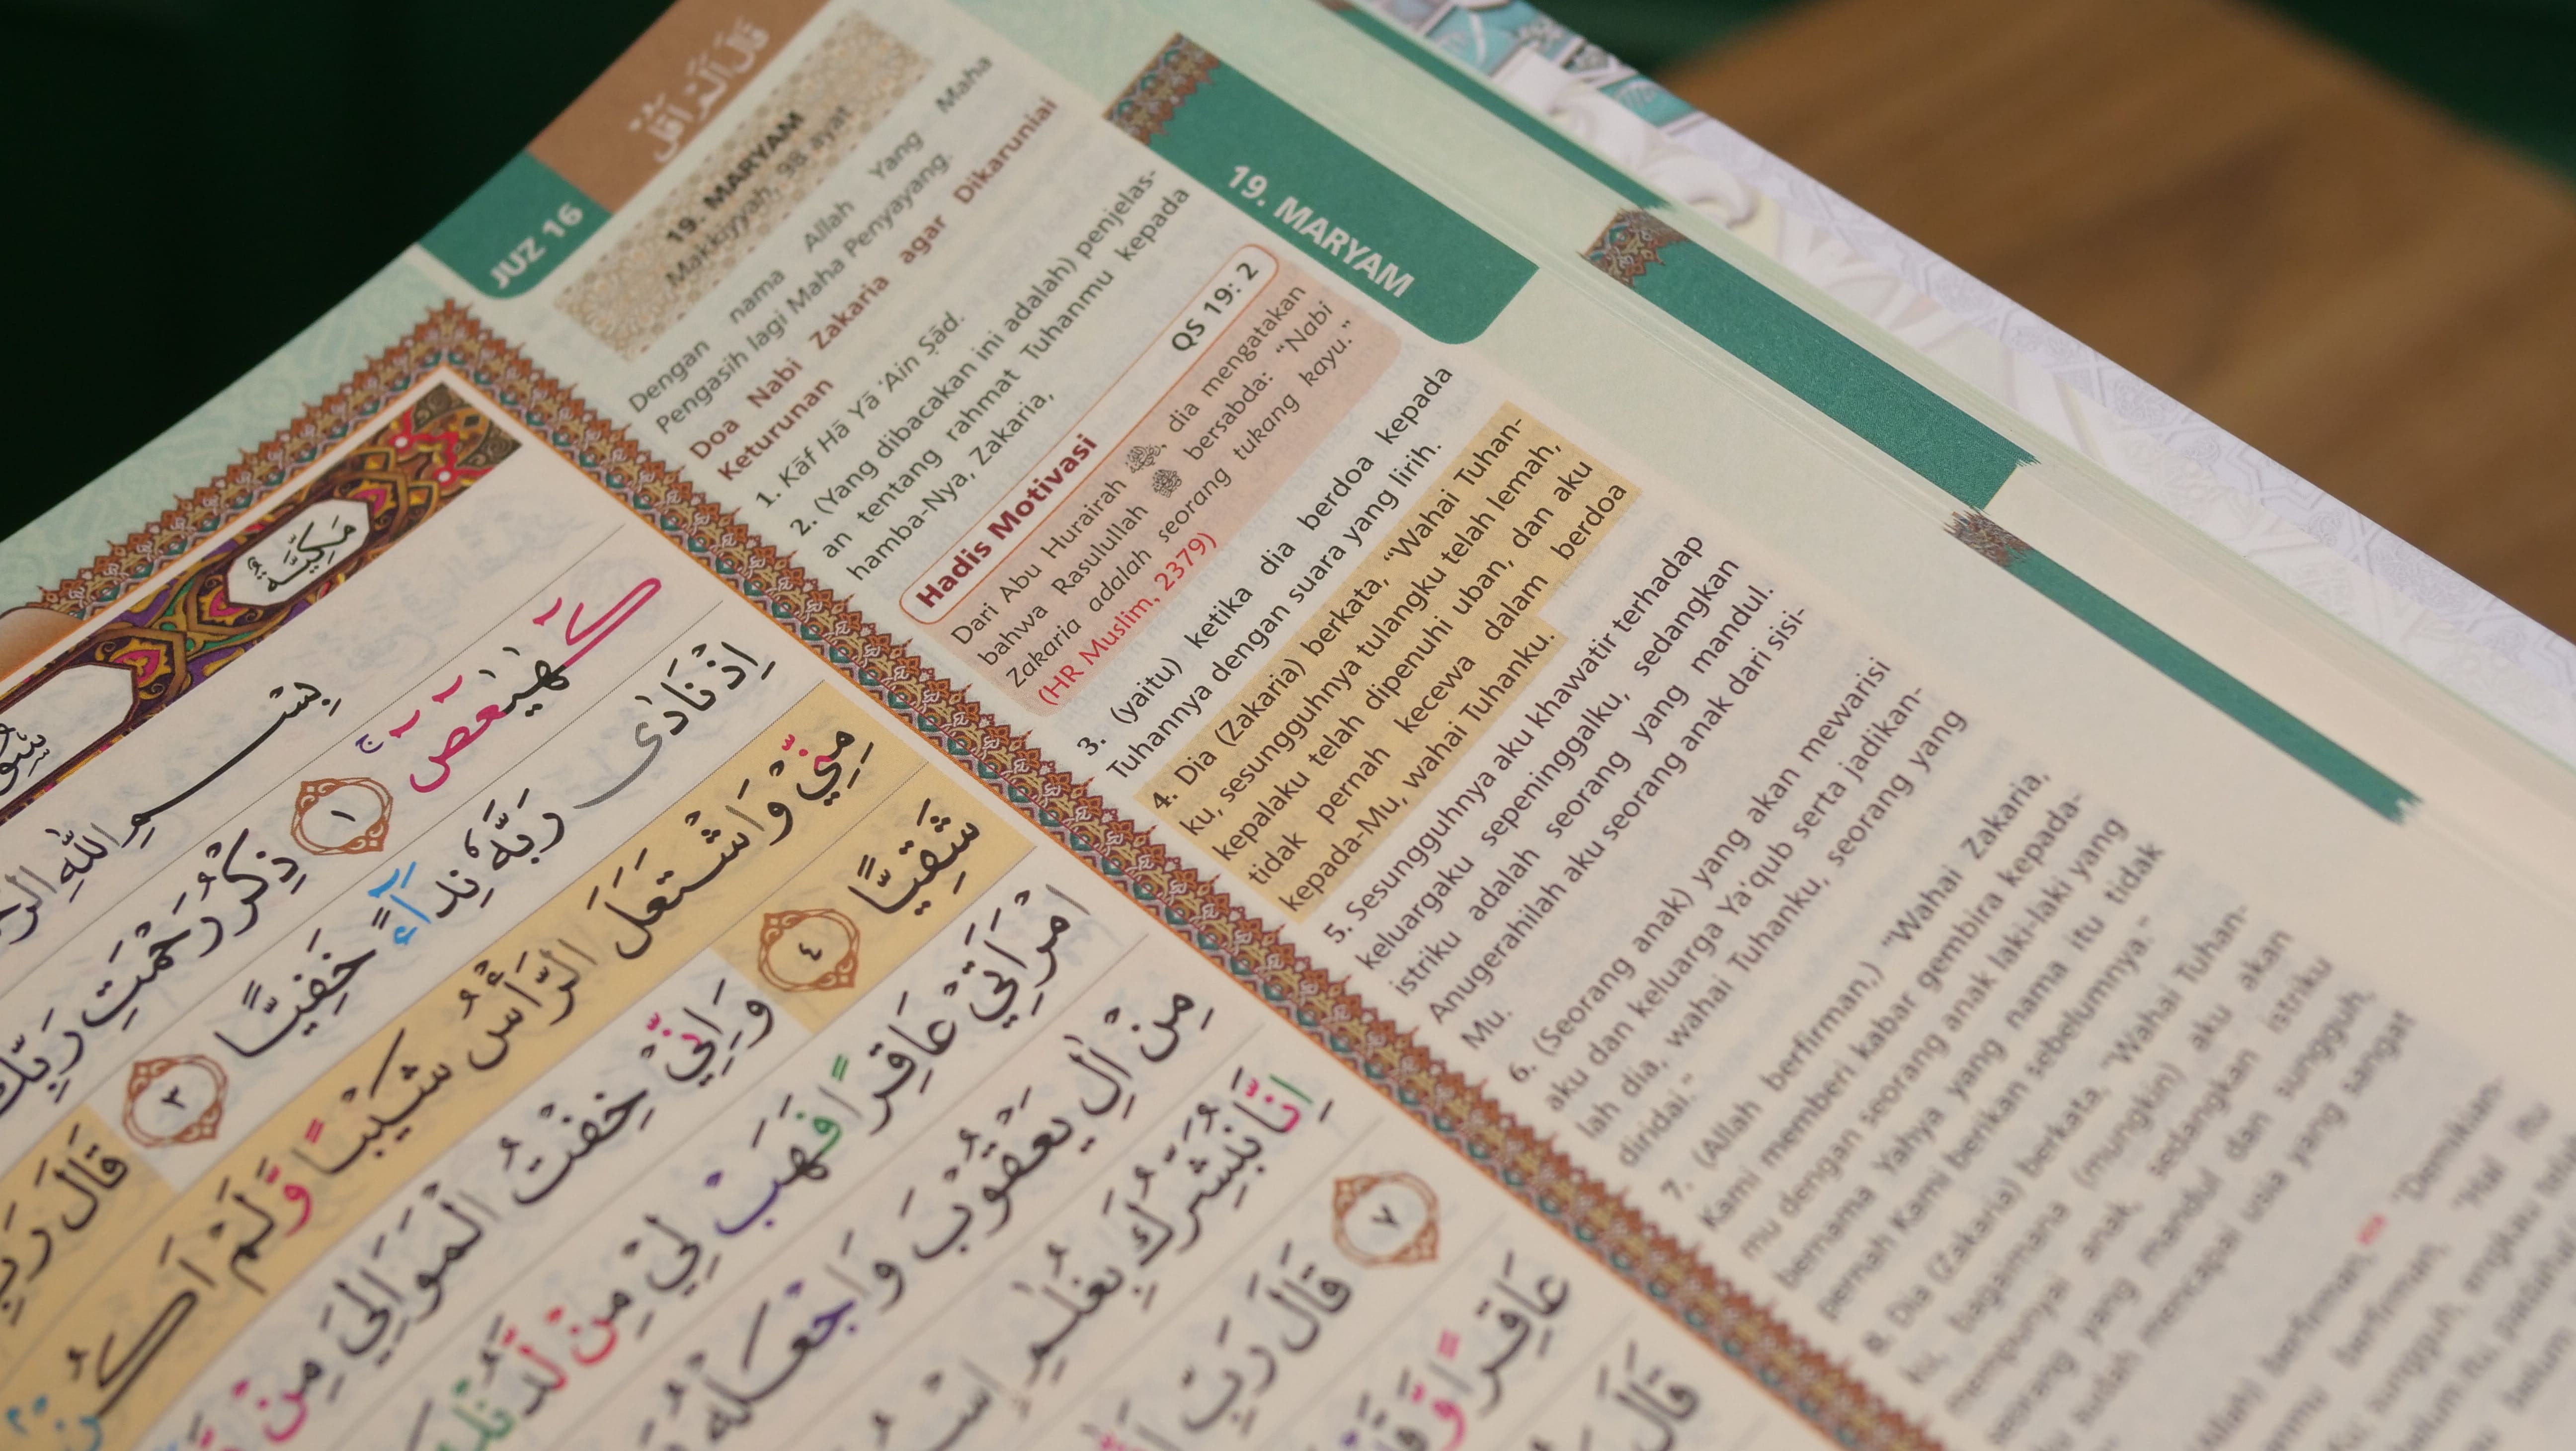 قَالَ اَلَمْ اَقُلْ
JUZ 16
19. MARYAM
Makkiyyah, 98 ayat
Dengan nama Allah Yang Maha
Pengasih lagi Maha Penyayang.
Doa Nabi Zakaria agar Dikaruniai
Keturunan
1. Kāf Hā Yā ‘Ain Ṣād.
2. (Yang dibacakan ini adalah) penjelas-
an tentang rahmat Tuhanmu kepada
hamba-Nya, Zakaria,
Hadis Motivasi QS 19: 2
Dari Abu Hurairah, dia mengatakan
bahwa Rasulullah ﷺ bersabda: “Nabi
Zakaria adalah seorang tukang kayu.”
(HR Muslim, 2379)
3. (yaitu) ketika dia berdoa kepada
Tuhannya dengan suara yang lirih.
4. Dia (Zakaria) berkata, “Wahai Tuhan-
ku, sesungguhnya tulangku telah lemah,
kepalaku telah dipenuhi uban, dan aku
tidak pernah kecewa dalam berdoa
kepada-Mu, wahai Tuhanku.
5. Sesungguhnya aku khawatir terhadap
keluargaku sepeninggalku, sedangkan
istriku adalah seorang yang mandul.
Anugerahilah aku seorang anak dari sisi-
Mu.
6. (Seorang anak) yang akan mewarisi
aku dan keluarga Ya‘qub serta jadikan-
lah dia, wahai Tuhanku, seorang yang
diridai.”
7. (Allah berfirman,) “Wahai Zakaria,
Kami memberi kabar gembira kepada-
mu dengan seorang anak laki-laki yang
bernama Yahya yang nama itu tidak
pernah Kami berikan sebelumnya.”
8. Dia (Zakaria) berkata, “Wahai Tuhan-
ku, bagaimana (mungkin) aku akan
mempunyai anak, sedangkan istriku
seorang yang mandul dan sungguh,
sudah mencapai usia yang sangat
berfirman, “Demikian-
berfirman, “Hal itu
19. MARYAM
مَكِّيَّةٌ
بِسْمِ اللّٰهِ
كۤهٰيٰعۤصۤ ۚ ١ ذِكْرُ رَحْمَتِ رَبِّكَ
اِذْ نَادٰى رَبَّهٗ نِدَاۤءً خَفِيًّا ٣ قَالَ رَبِّ
مِنِّيْ وَاشْتَعَلَ الرَّأْسُ شَيْبًا وَّلَمْ اَكُنْ
شَقِيًّا ٤ وَاِنِّيْ خِفْتُ الْمَوَالِيَ مِنْ
امْرَاَتِيْ عَاقِرًا فَهَبْ لِيْ مِنْ لَّدُنْكَ
مِنْ اٰلِ يَعْقُوْبَ وَاجْعَلْهُ
اِنَّا نُبَشِّرُكَ بِغُلٰمِ
٧ قَالَ رَبِّ
عَاقِرًا وَّقَدْ
قَالَ